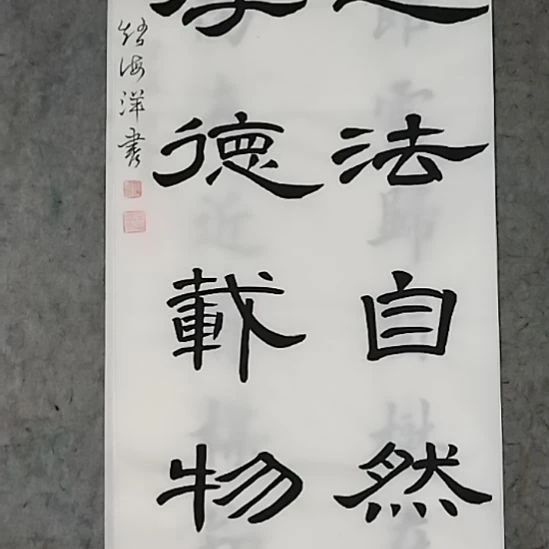 法自然
德載物
海洋書